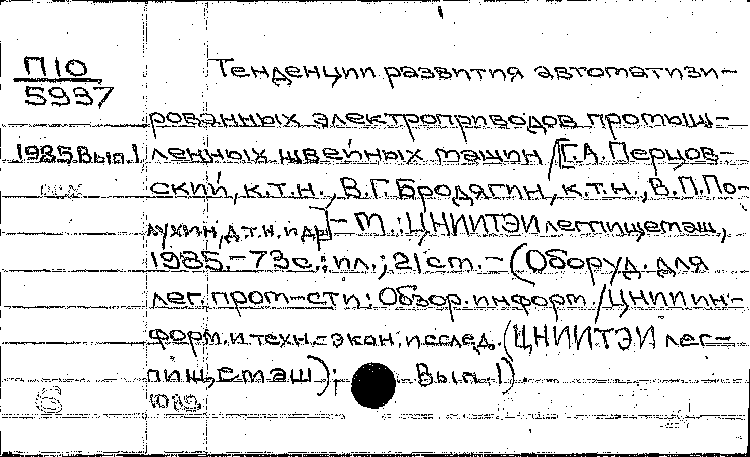 П10
5937
Тенденции развития автоматизи-
рованных электроприводов промыш-
1985 Вып.1 ленных швейных машин / [Г.А. Перцов-
ский, к.т.н., В.Г. Бродягин, к.т.н., В.П. По-
лухин, д.т.н. и др.] – М.: ЦНИИТЭИлегпищемаш,
1985. – 73 с.: ил.; 21 см. – (Оборуд. для
лег. пром-сти: Обзор. информ. / ЦНИИ ин-
форм. и техн.-экон. исслед. (ЦНИИТЭИ лег-
пищемаш); Вып. 1).
6